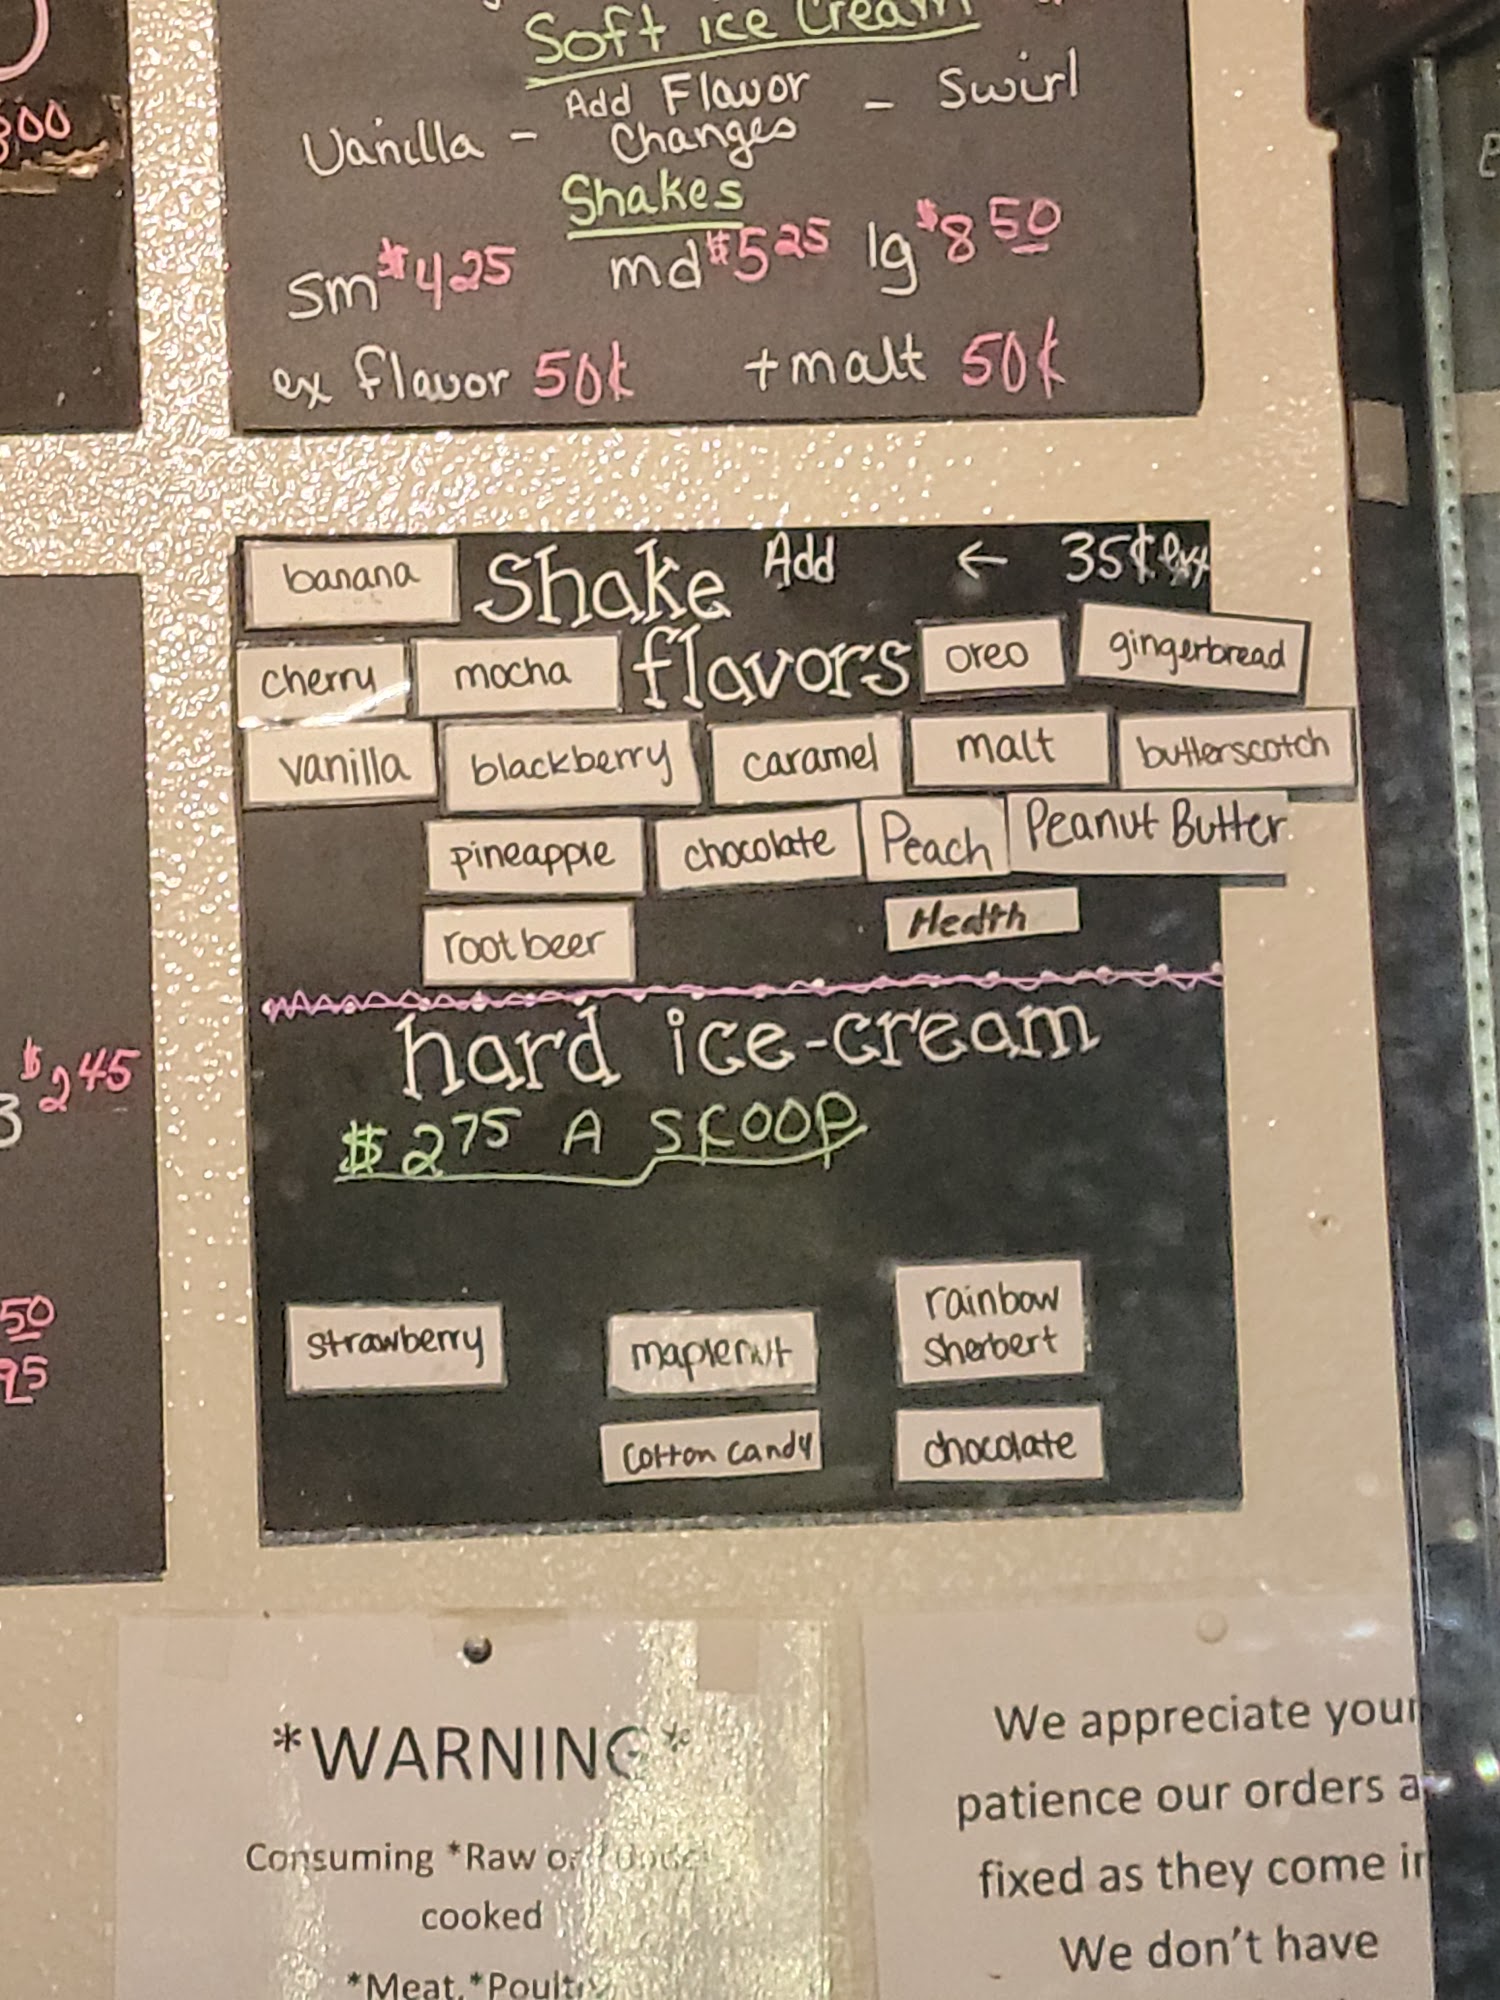 Soft ice Cream
Vanilla - Add Flavor Changes - Swirl
Shakes
Sm $4 25 md $5 25 lg $8 50
ex flavor 50¢ +malt 50¢
banana Shake Add ← 35¢
cherry mocha flavors oreo gingerbread
vanilla blackberry caramel malt butterscotch
pineapple chocolate Peach Peanut Butter
root beer Heath
hard ice-cream
$2 75 A SCOOP
strawberry maplenut rainbow sherbert
cotton candy chocolate
$2 45
50
95
*WARNING*
Consuming *Raw or
cooked
*Meat, *Poultry
We appreciate your
patience our orders a
fixed as they come in
We don't have